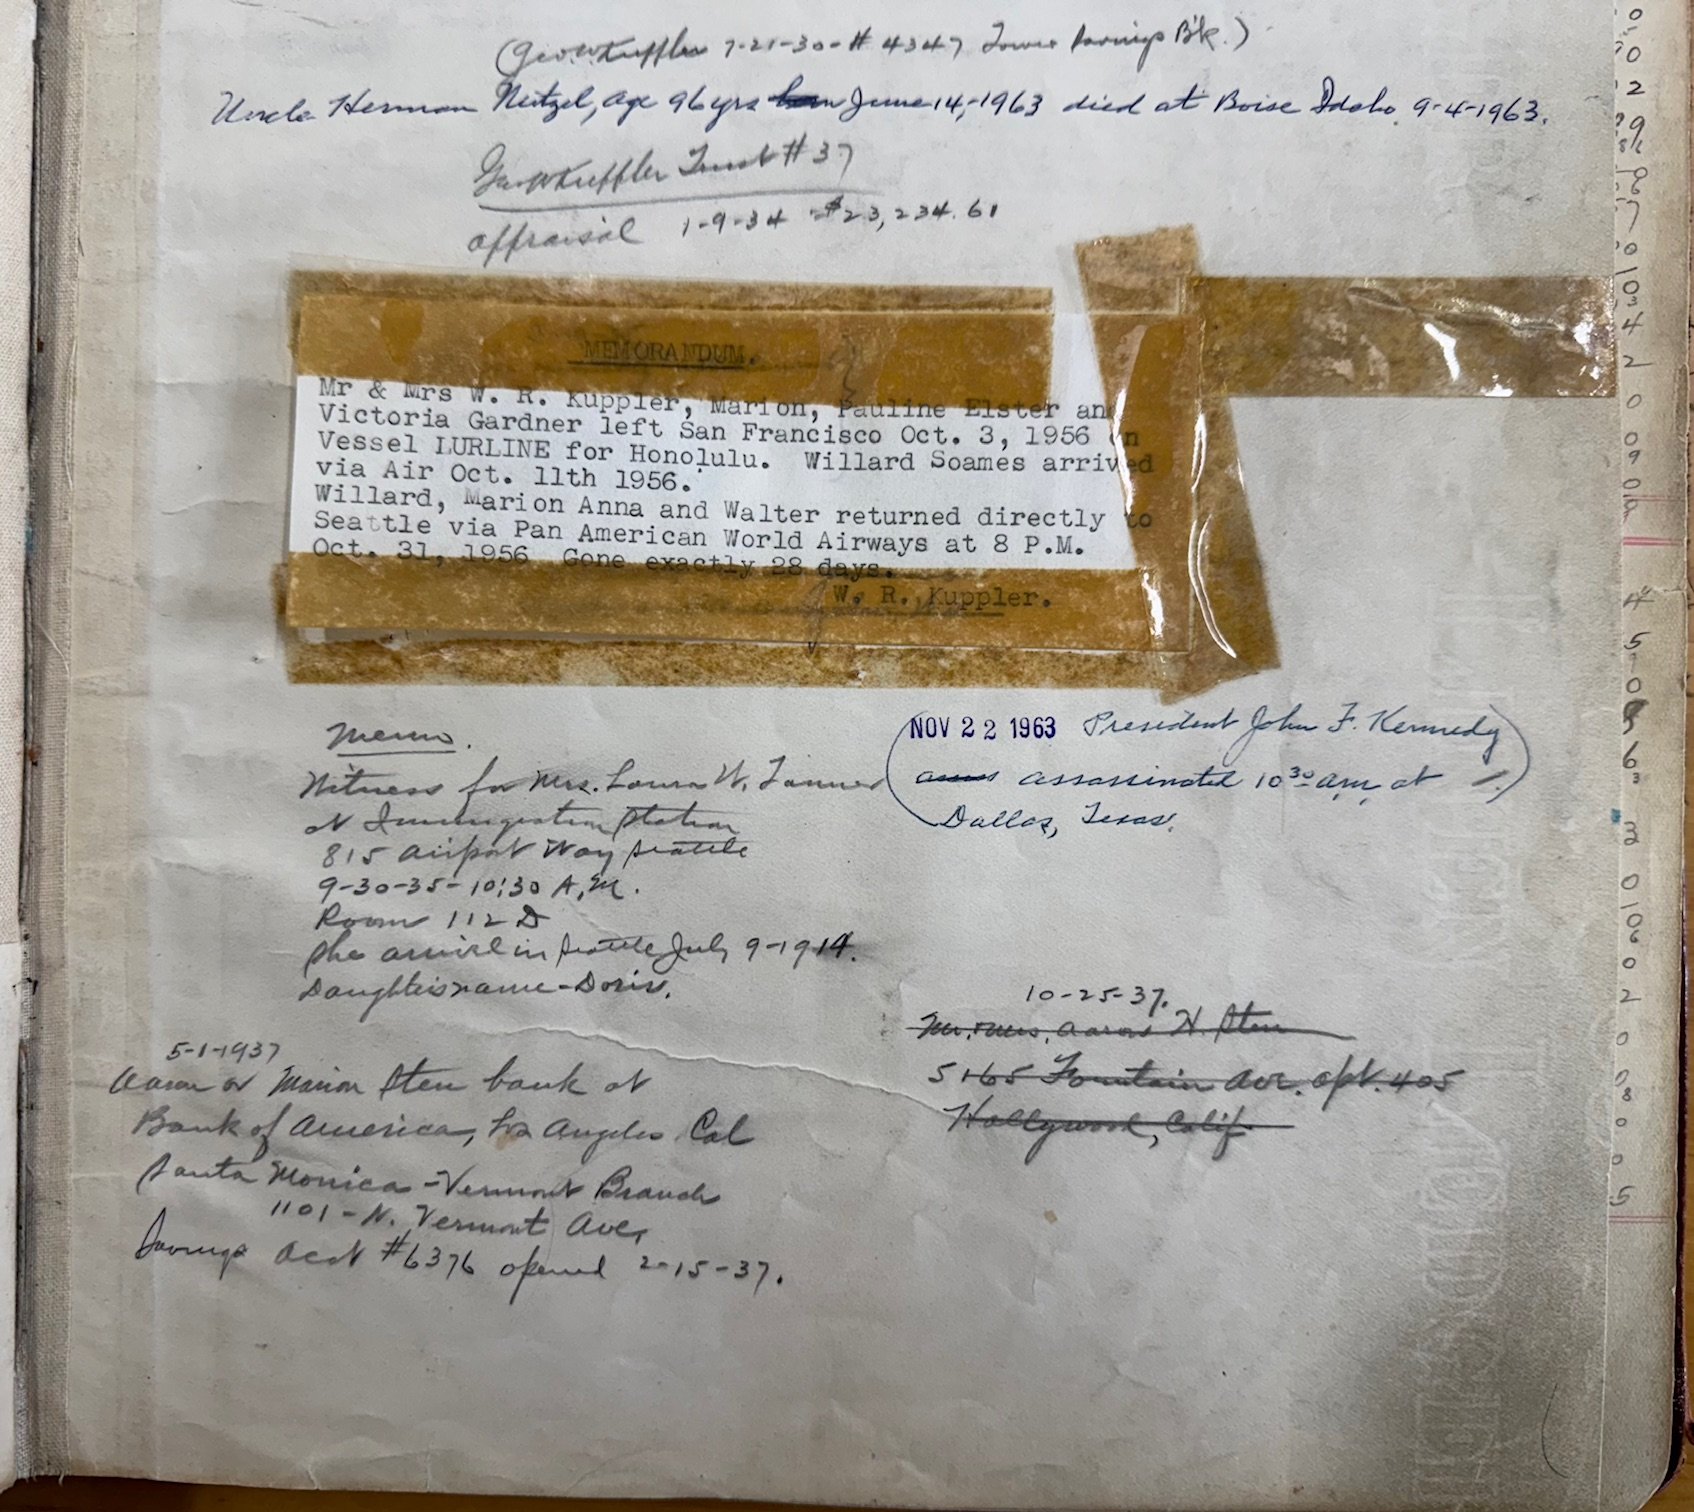 (Geo W Kuppler 7-21-30-# 4347 Tower Savings Bk.)
Uncle Herman Neitzel, age 96 yrs born June 14,-1963 died at Boise Idaho. 9-4-1963.
Geo W Kuppler Trust # 37
appraisal 1-9-34 $23,234.61
MEMORANDUM.
Mr & Mrs W. R. Kuppler, Marion, Pauline Elster an
Victoria Gardner left San Francisco Oct. 3, 1956 on
Vessel LURLINE for Honolulu. Willard Soames arrived
via Air Oct. 11th 1956.
Willard, Marion Anna and Walter returned directly to
Seattle via Pan American World Airways at 8 P.M.
Oct. 31, 1956 Gone exactly 28 days.
W. R. Kuppler.
Memo.
Witness for Mrs. Laura W. Tanner
at Immigration Station
815 Airport Way Seattle
9-30-35-10:30 A.M.
Room 112 D
She arrived in Seattle July 9-1914.
Daughters name-Doris.
NOV 22 1963 President John F. Kennedy
assassinated 10 30 am, at
Dallas, Texas.
10-25-37.
Mr. & Mrs. Aaron H. Sten
5165 Fountain Ave. apt. 405
Hollywood, Calif.
5-1-1937
Aaron or Marion Sten bank at
Bank of America, Los Angeles Cal
Santa Monica-Vermont Branch
1101-N. Vermont Ave,
Savings Acct #6376 opened 2-15-37.